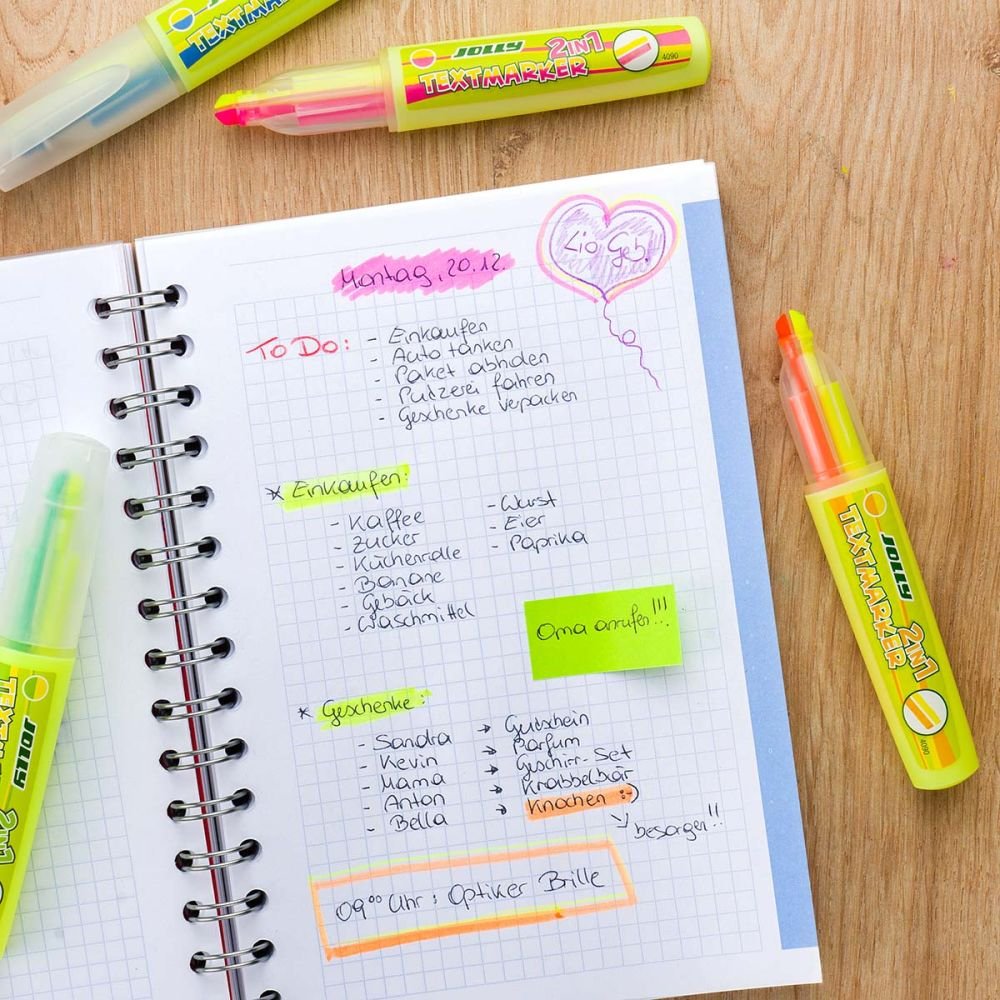 TEXTMARKER
JOLLY
TEXTMARKER 2IN1
4090
Lio Geb.
Montag, 20.12.
To Do: - Einkaufen
- Auto tanken
- Paket abholen
- Putzerei fahren
- Geschenke verpacken
* Einkaufen:
- Kaffee - Wurst
- Zucker - Eier
- Küchenrolle - Paprika
- Banane
- Gebäck
- Waschmittel
Oma anrufen!!!
* Geschenke:
- Sandra → Gutschein
- Kevin → Parfum
- Mama → Geschirr-Set
- Anton → Knabbelbär
- Bella → Knochen :)
↘ besorgen!!
09⁰⁰ Uhr: Optiker Brille
JOLLY
TEXTMARKER 2IN1
4090
JOLLY
2IN1